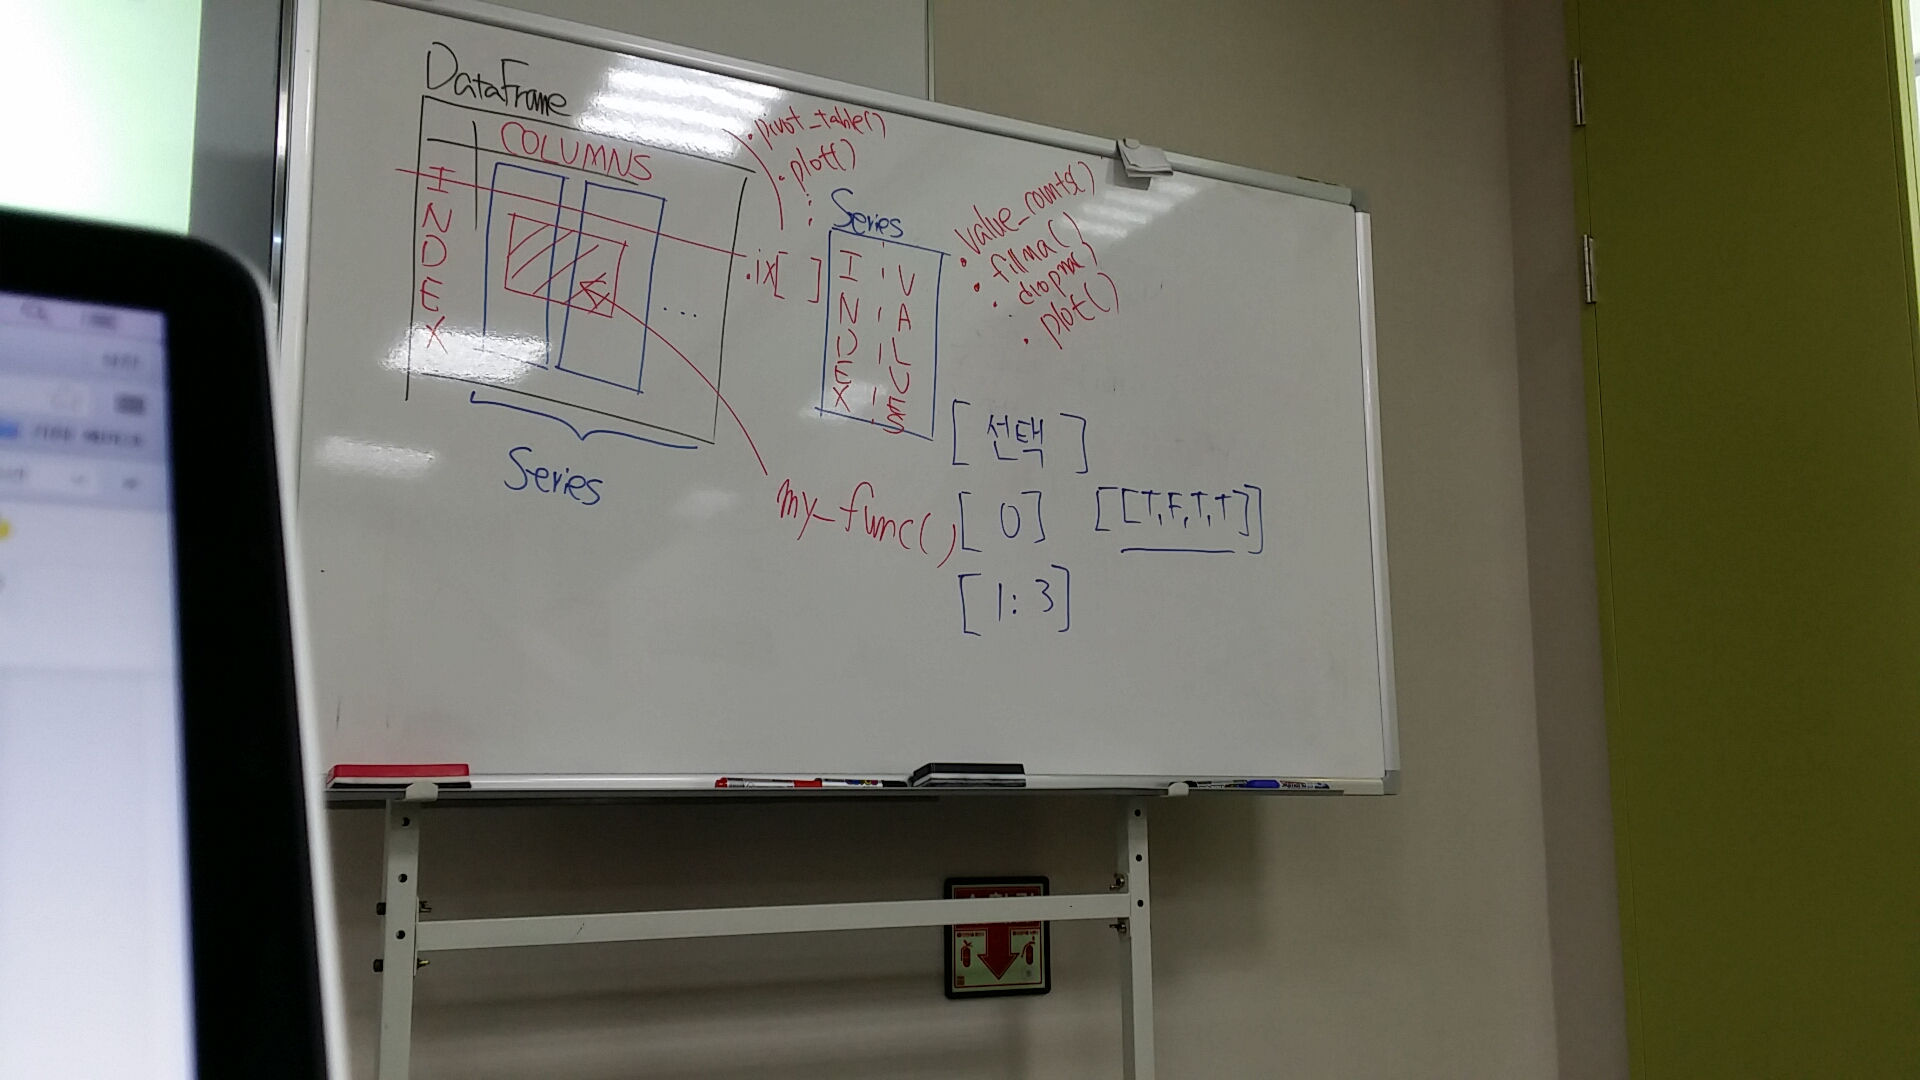 DataFrame
COLUMNS
INDEX
...
Series
.pivot_table()
.plot()
.ix[ ]
Series
INDEX
VALUES
.value_counts()
.fillna()
.dropna()
.plot()
my_func()
[ 선택 ]
[ 0 ] [[T,F,T,T]]
[ 1:3 ]